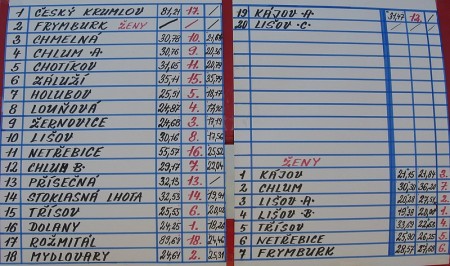 1 ČESKÝ KRUMLOV 81,21 17. /
2 FRYMBURK ŽENY / / /
3 CHMELNÁ 30,78 10. 21,88
4 CHLUM A 30,76 9. 20,36
5 CHOTÍKOV 31,05 11. 20,79
6 ZÁLUŽÍ 35,11 15. 35,79
7 HOLUBOV 25,51 5. 18,17
8 LOUŇOVÁ 24,87 4. 17,90
9 ŽERNOVICE 24,68 3. 17,11
10 LIŠOV 30,16 8. 17,56
11 NETŘEBICE 55,57 16. 25,52
12 CHLUM B 29,17 7. 22,04
13 PŘÍSEČNÁ 32,13 13. /
14 STOKLASNÁ LHOTA 32,53 14. 19,91
15 TŘÍSOV 25,53 6. 20,02
16 DOLANY 24,25 1. 18,28
17 ROŽMITÁL 82,67 18. 24,46
18 MYDLOVARY 24,61 2. 25,31
19 KÁJOV A 31,47 12. /
20 LIŠOV C / / /
ŽENY
1 KÁJOV 21,15 21,84 3.
2 CHLUM 30,30 36,20 7.
3 LIŠOV A 20,28 27,51 2.
4 LIŠOV B 19,38 20,00 1.
5 TŘÍSOV 33,69 22,63 4.
6 NETŘEBICE 25,90 26,25 5.
7 FRYMBURK 28,57 27,68 6.